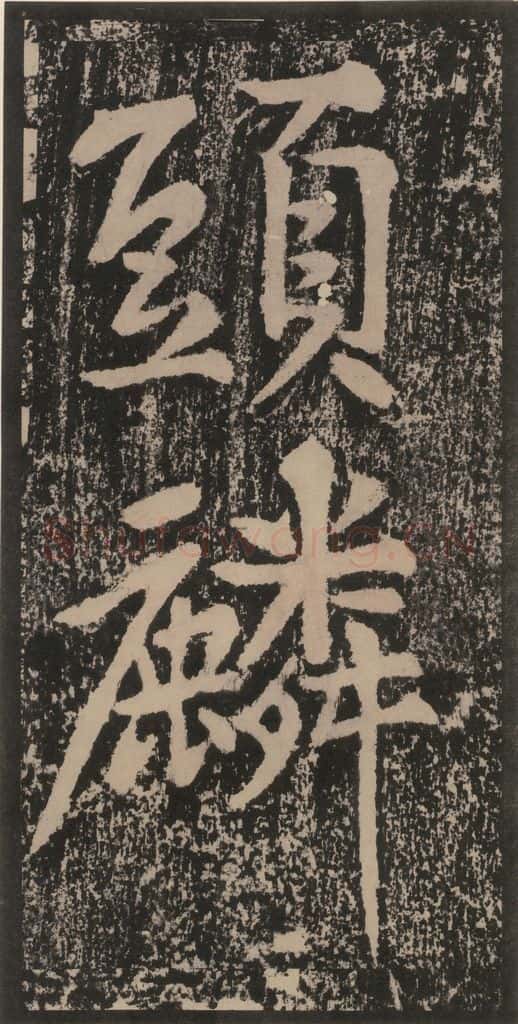 頭麟
Shufawang.CN